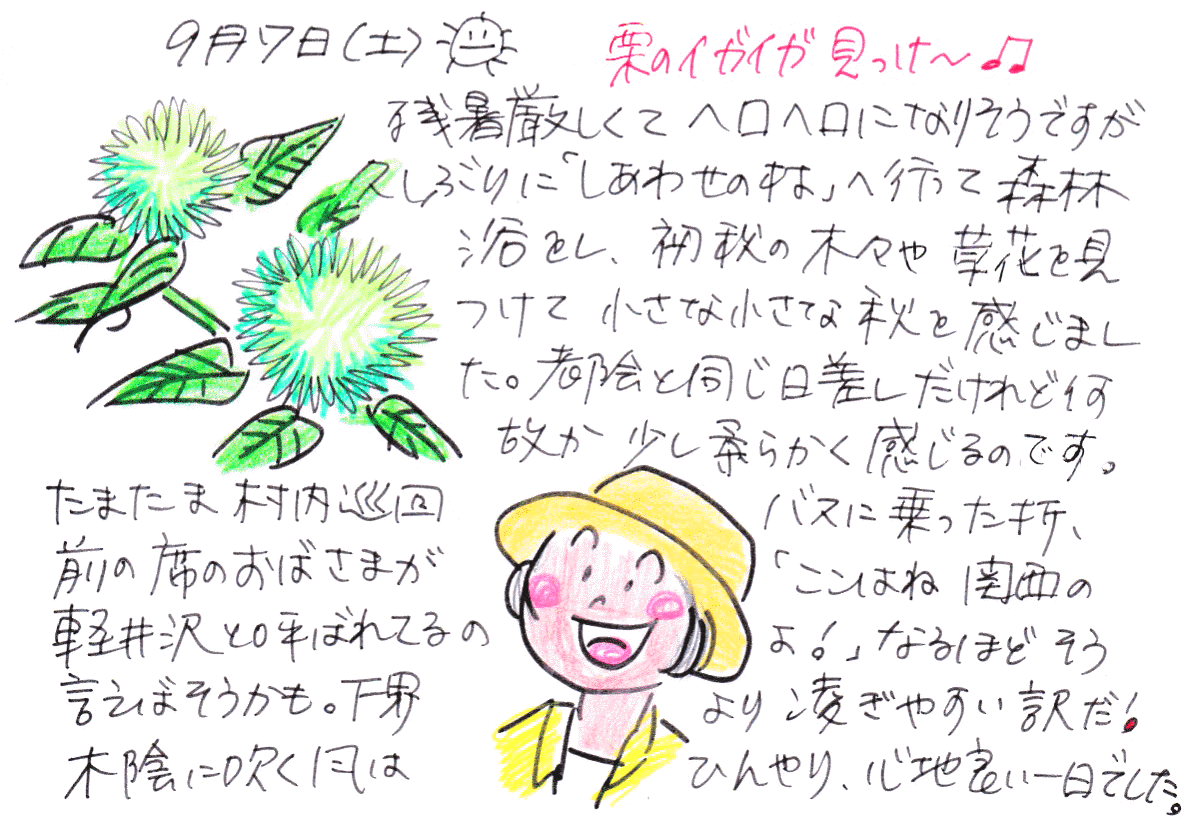 9月7日(土)
栗のイガイガ見っけ〜♫
残暑厳しくてヘロヘロになりそうですが
久しぶりに「しあわせの村」へ行って森林
浴をし、初秋の木々や草花を見
つけて小さな小さな秋を感じまし
た。都会と同じ日差しだけれど何
故か少し柔らかく感じるのです。
たまたま村内巡回バスに乗った折、
前の席のおばさまが「ここはね関西の
軽井沢と呼ばれてるのよ!」なるほどそう
言えばそうかも。下界より凌ぎやすい訳だ!
木陰に吹く風はひんやり、心地良い一日でした。